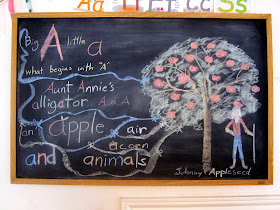 Big A little a
what begins with "A"
Aunt Annie's
alligator A.a.A
an apple air
acorn
and animals
Johnny Appleseed